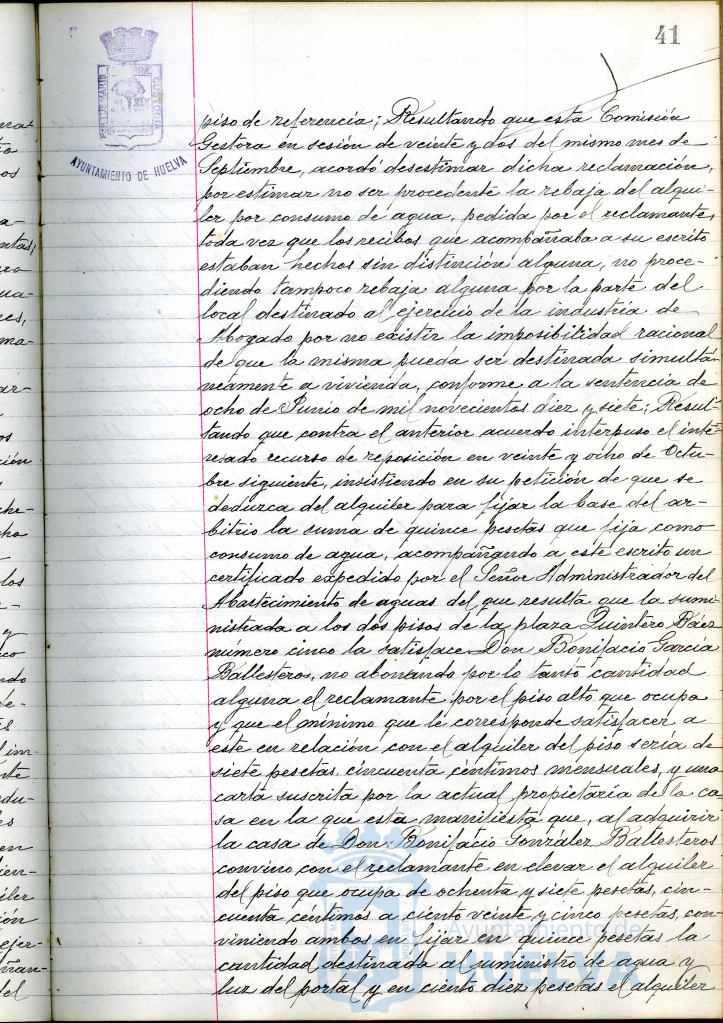 41
PORTUS MARIS
CUSTODIA
AYUNTAMIENTO DE HUELVA
piso de referencia; Resultando que esta Comisión
Gestora en sesión de veinte y dos del mismo mes de
Septiembre, acordó desestimar dicha reclamación,
por estimar no ser procedente la rebaja del alqui-
ler por consumo de agua, pedida por el reclamante,
toda vez que los recibos que acompañaba a su escrito
estaban hechos sin distinción alguna; no proce-
diendo tampoco rebaja alguna por la parte del
local destinado al ejercicio de la industria de
Abogado por no existir la imposibilidad racional
de que la misma pueda ser destinada simultá-
neamente a vivienda, conforme a la sentencia de
ocho de Junio de mil novecientos diez y siete; Resul-
tando que contra el anterior acuerdo interpuso el inte-
resado recurso de reposición en veinte y ocho de Octu-
bre siguiente, insistiendo en su petición de que se
deduzca del alquiler para fijar la base del ar-
bitrio la suma de quince pesetas que fija como
consumo de agua, acompañando a este escrito un
certificado expedido por el Señor Administrador del
Abastecimiento de aguas del que resulta que la sumi-
nistrada a los dos pisos de la plaza Quintero Báez
número cinco la satisface Don Bonifacio García
Ballesteros, no abonando por lo tanto cantidad
alguna el reclamante por el piso alto que ocupa
y que el mínimo que le corresponde satisfacer a
este en relación con el alquiler del piso sería de
siete pesetas, cincuenta céntimos mensuales, y una
carta suscrita por la actual propietaria de la ca-
sa en la que esta manifiesta que, al adquirir
la casa de Don Bonifacio González Ballesteros
convino con el reclamante en elevar el alquiler
del piso que ocupa de ochenta y siete pesetas, cin-
cuenta céntimos a ciento veinte y cinco pesetas, con-
viniendo ambos en fijar en quince pesetas la
cantidad destinada al suministro de agua y
luz del portal y en ciento diez pesetas el alquiler
Ayuntamiento de
HUELVA